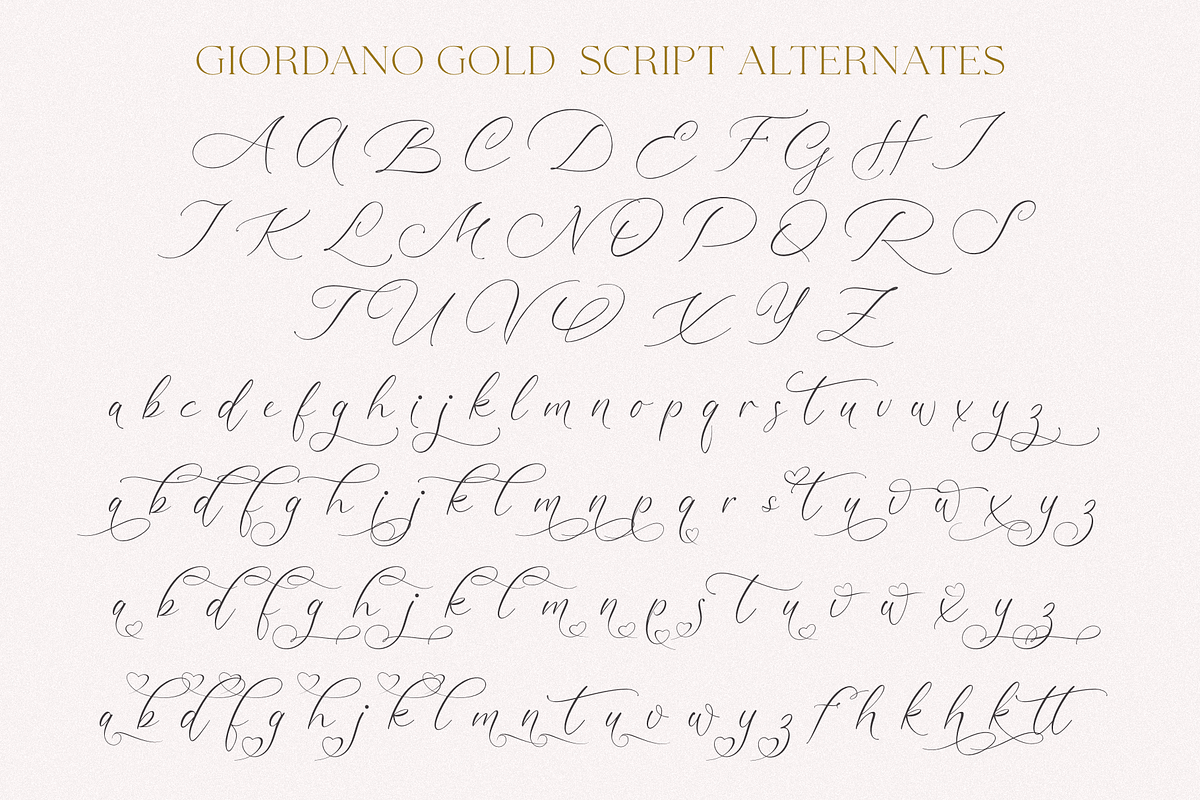 GIORDANO GOLD SCRIPT ALTERNATES
A A B C D E F G H I
J K L M N O P Q R S
T U V W X Y Z
a b c d e f g h i j k l m n o p q r s t u v w x y z
a b d f g h i j k l m n p q r s t u v w x y z
a b d f g h j k l m n p s t u v w x y z
a b d f g h j k l m n t u v w y z f h k h k tt